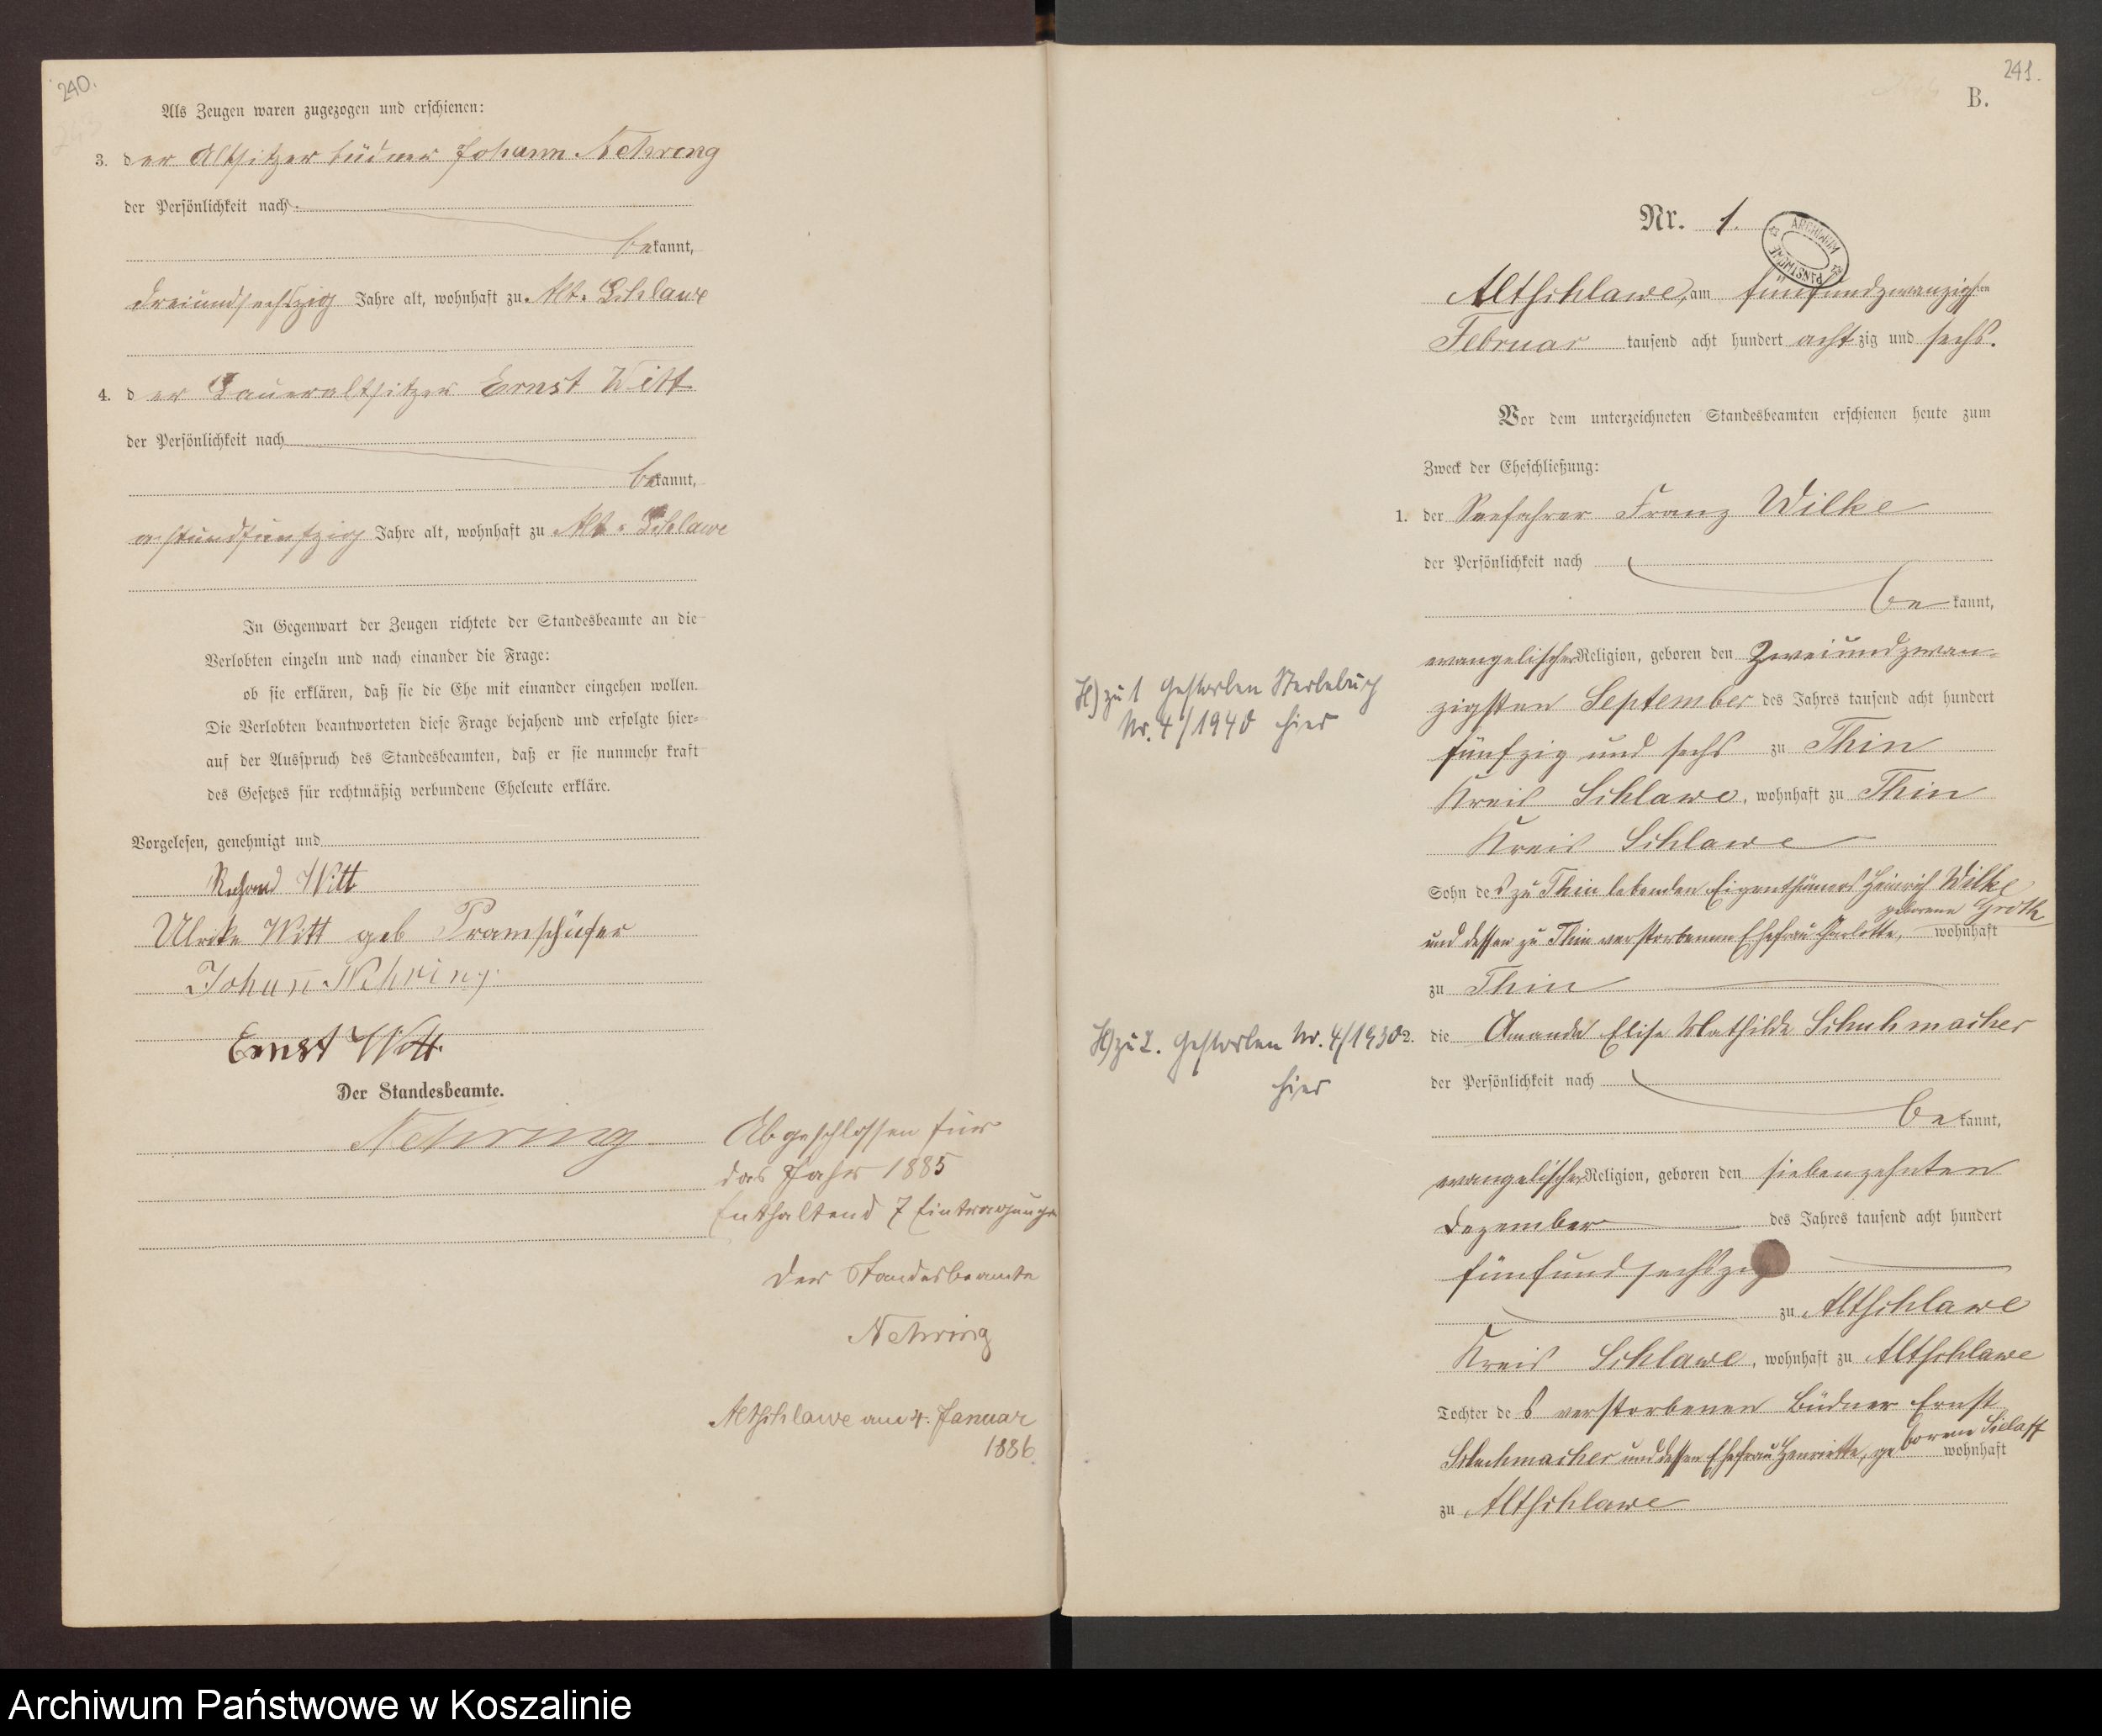 240.
Als Zeugen waren zugezogen und erschienen:
3. der Altsitzer Büdner Johann Nehring
der Persönlichkeit nach
bekannt,
dreiundsechszig Jahre alt, wohnhaft zu Alt-Schlawe
4. der Baueraltsitzer Ernst Witt
der Persönlichkeit nach
bekannt,
achtundfünfzig Jahre alt, wohnhaft zu Alt-Schlawe
In Gegenwart der Zeugen richtete der Standesbeamte an die
Verlobten einzeln und nach einander die Frage:
ob sie erklären, daß sie die Ehe mit einander eingehen wollen.
Die Verlobten beantworteten diese Frage bejahend und erfolgte hier-
auf der Ausspruch des Standesbeamten, daß er sie nunmehr kraft
des Gesetzes für rechtmäßig verbundene Eheleute erkläre.
Vorgelesen, genehmigt und
Witt
Ulrike Witt geb Pramschüfer
Johann Nehring
Ernst Witt
Der Standesbeamte.
Nehring
Abgeschlossen für
das Jahr 1885
Enthaltend 7 Eintragungen
Der Standesbeamte
Nehring
Altschlawe am 4. Januar
1886.
241.
B.
Nr. 1.
ARCHIWUM PAŃSTWOWE
Altschlawe, am fünfundzwanzigsten
Februar tausend acht hundert achtzig und sechs.
Vor dem unterzeichneten Standesbeamten erschienen heute zum
Zweck der Eheschließung:
1. der Seefahrer Franz Wilke
der Persönlichkeit nach
bekannt,
evangelischer Religion, geboren den zweiundzwan-
zigsten September des Jahres tausend acht hundert
fünfzig und sechs zu Thin
Kreis Schlawe, wohnhaft zu Thin
Kreis Schlawe
Sohn des zu Thin lebenden Eigenthümers Heinrich Wilke
und dessen zu Thin verstorbenen Ehefrau Charlotte, geborene Groth wohnhaft
zu Thin
H) zu 1 Gestorben Sterbebuch
Nr. 4/1940 hier
2. die Amanda Elise Mathilde Schuhmacher
H) zu 2. Gestorben Nr. 4/1930
hier
der Persönlichkeit nach
bekannt,
evangelischer Religion, geboren den siebenzehnten
Dezember des Jahres tausend acht hundert
fünfundsechszig
zu Altschlawe
Kreis Schlawe, wohnhaft zu Altschlawe
Tochter des verstorbenen Büdner Ernst
Schuhmacher und dessen Ehefrau Henriette, geborene Sielaff wohnhaft
zu Altschlawe
Archiwum Państwowe w Koszalinie